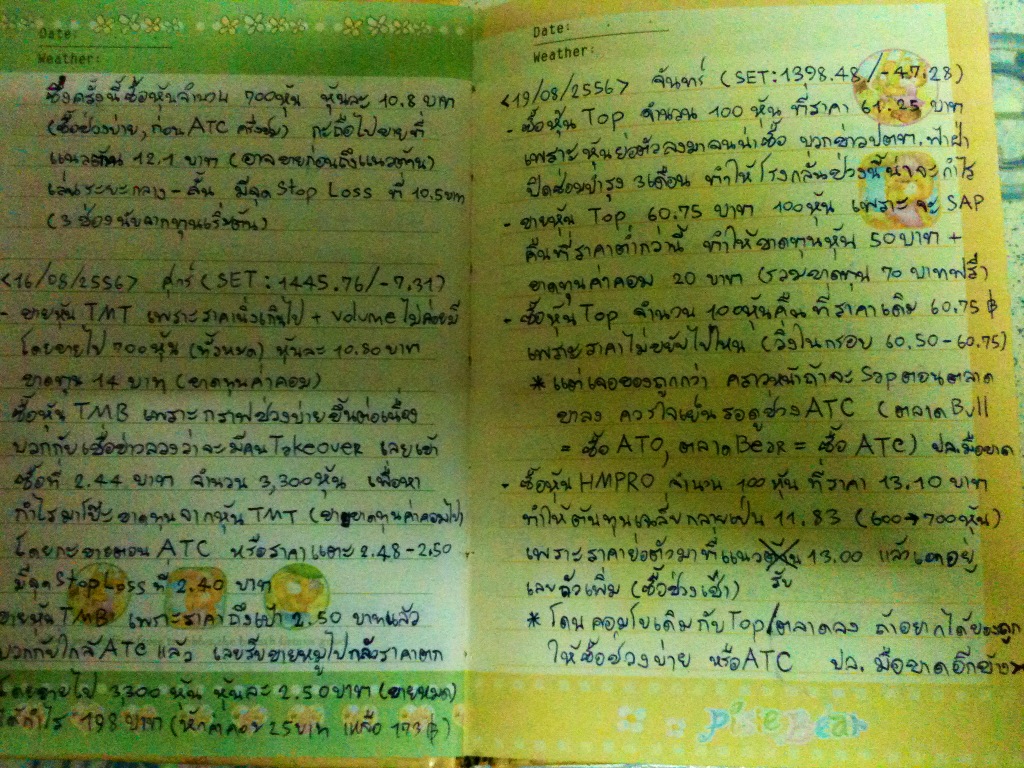 Date:
Weather:
ซึ่งครั้งนี้ซื้อหุ้นจำนวน 700หุ้น หุ้นละ 10.8 บาท
(ซื้อช่วงบ่าย, ก่อน ATC ครึ่งชม) กะถือไปขายที่
แนวต้าน 12.1 บาท (อาจขายก่อนถึงแนวต้าน)
เล่นระยะกลาง-สั้น มีจุด Stop Loss ที่ 10.5 บาท
(3 ช่องนับจากทุนเริ่มต้น)
<16/08/2556> ศุกร์ (SET: 1445.76/-7.31)
- ขายหุ้น TMT เพราะราคานิ่งเกินไป + volume ไม่ค่อยมี
โดยขายไป 700หุ้น (ทั้งหมด) หุ้นละ 10.80 บาท
ขาดทุน 14 บาท (ขาดทุนค่าคอม)
ซื้อหุ้น TMB เพราะกราฟช่วงบ่ายขึ้นต่อเนื่อง
บวกกับเชื่อข่าวลวงว่าจะมีคน Takeover เลยเข้า
ซื้อที่ 2.44 บาท จำนวน 3,300หุ้น เพื่อหา
กำไรมาโปะขาดทุนจากหุ้น TMT (ขาดทุนค่าคอมไป)
โดยกะขายตอน ATC หรือราคาแตะ 2.48-2.50
มีจุด Stop Loss ที่ 2.40 บาท
ขายหุ้น TMB เพราะราคาถึงเป้า 2.50 บาทแล้ว
บวกกับใกล้ ATC แล้ว เลยรีบขายหมูไปกลัวราคาตก
โดยขายไป 3,300 หุ้น หุ้นละ 2.50 บาท (ขายหมด)
ได้กำไร 198 บาท (หักค่าคอม 25 บาท เหลือ 173 ฿)
Date:
Weather:
<19/08/2556> จันทร์ (SET: 1398.48/-47.28)
- ซื้อหุ้น Top จำนวน 100 หุ้น ที่ราคา 61.25 บาท
เพราะหุ้นย่อตัวลงมาจนน่าซื้อ บวกข่าวปตท.ฟ้าผ่า
ปิดซ่อมบำรุง 3เดือน ทำให้โรงกลั่นช่วงนี้น่าจะกำไร
- ขายหุ้น Top 60.75 บาท 100หุ้น เพราะจะ SAP
คืนที่ราคาต่ำกว่านี้ ทำให้ขาดทุนหุ้น 50 บาท +
ขาดทุนค่าคอม 20 บาท (รวมขาดทุน 70 บาทฟรี)
- ซื้อหุ้น Top จำนวน 100หุ้นคืนที่ราคาเดิม 60.75 ฿
เพราะราคาไม่ขยับไปไหน (วิ่งในกรอบ 60.50-60.75)
* แต่เจอของถูกกว่า คราวหน้าถ้าจะ Sap ตอนตลาด
ขาลง ควรใจเย็นรอดูช่วง ATC (ตลาด Bull
= ซื้อ ATO, ตลาด Bear = ซื้อ ATC) ปล.มือขาด
- ซื้อหุ้น HMPRO จำนวน 100 หุ้น ที่ราคา 13.10 บาท
ทำให้ต้นทุนเฉลี่ยกลายเป็น 11.83 (600→700หุ้น)
เพราะราคาย่อตัวมาที่แนวรับ 13.00 แล้วเอาอยู่
เลยถัวเพิ่ม (ซื้อช่วงเช้า)
* โดนคอมโบเดิมกับ Top/ตลาดลง ถ้าอยากได้ของถูก
ให้ซื้อช่วงบ่าย หรือ ATC ปล. มือขาดอีกข้าง
pixie Bear